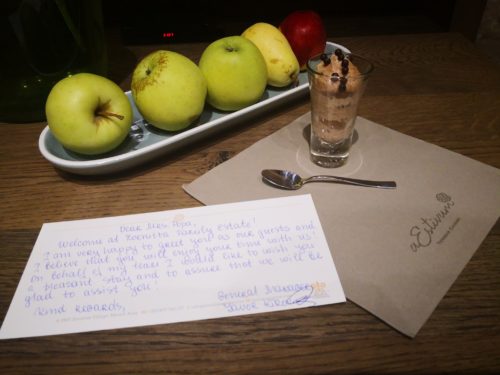 Dear Mrs. Popa,
Welcome at Zornitza Family Estate!
I am very happy to great you as our guests and
I believe that you will enjoy your time with us!
On behalf of my team I would like to wish you
a pleasant stay and to assure that we will be
glad to assist you!
Kind Regards,
General Manager
aEstivum